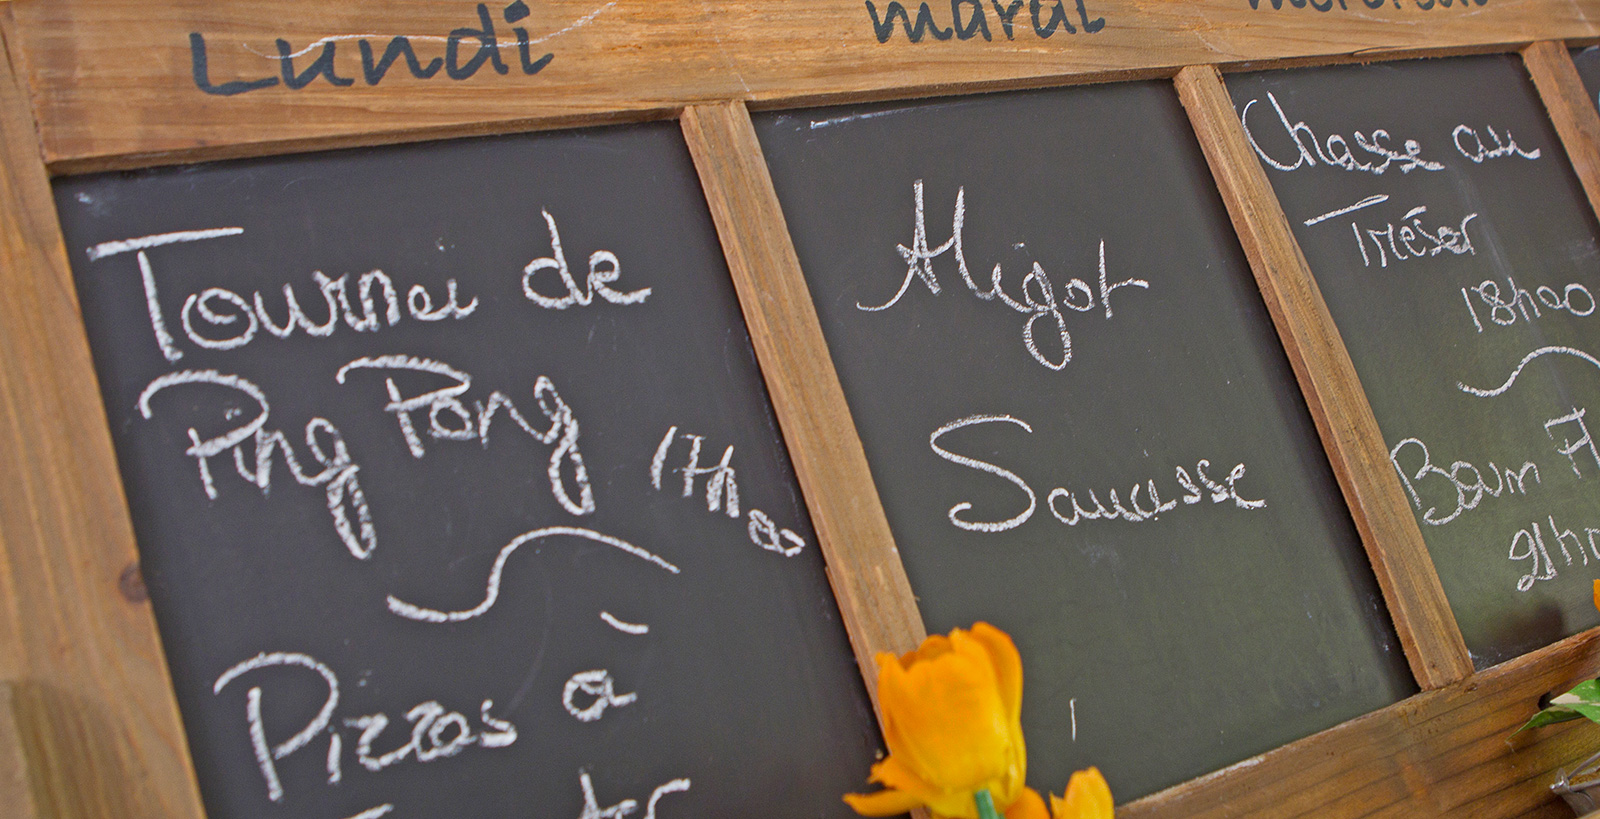 Lundi
Tournoi de
Ping Pong 17h00
Pizzas à
mardi
Aligot
Saucisse
mercredi
Chasse au
Trésor
18h00
Boum
21h